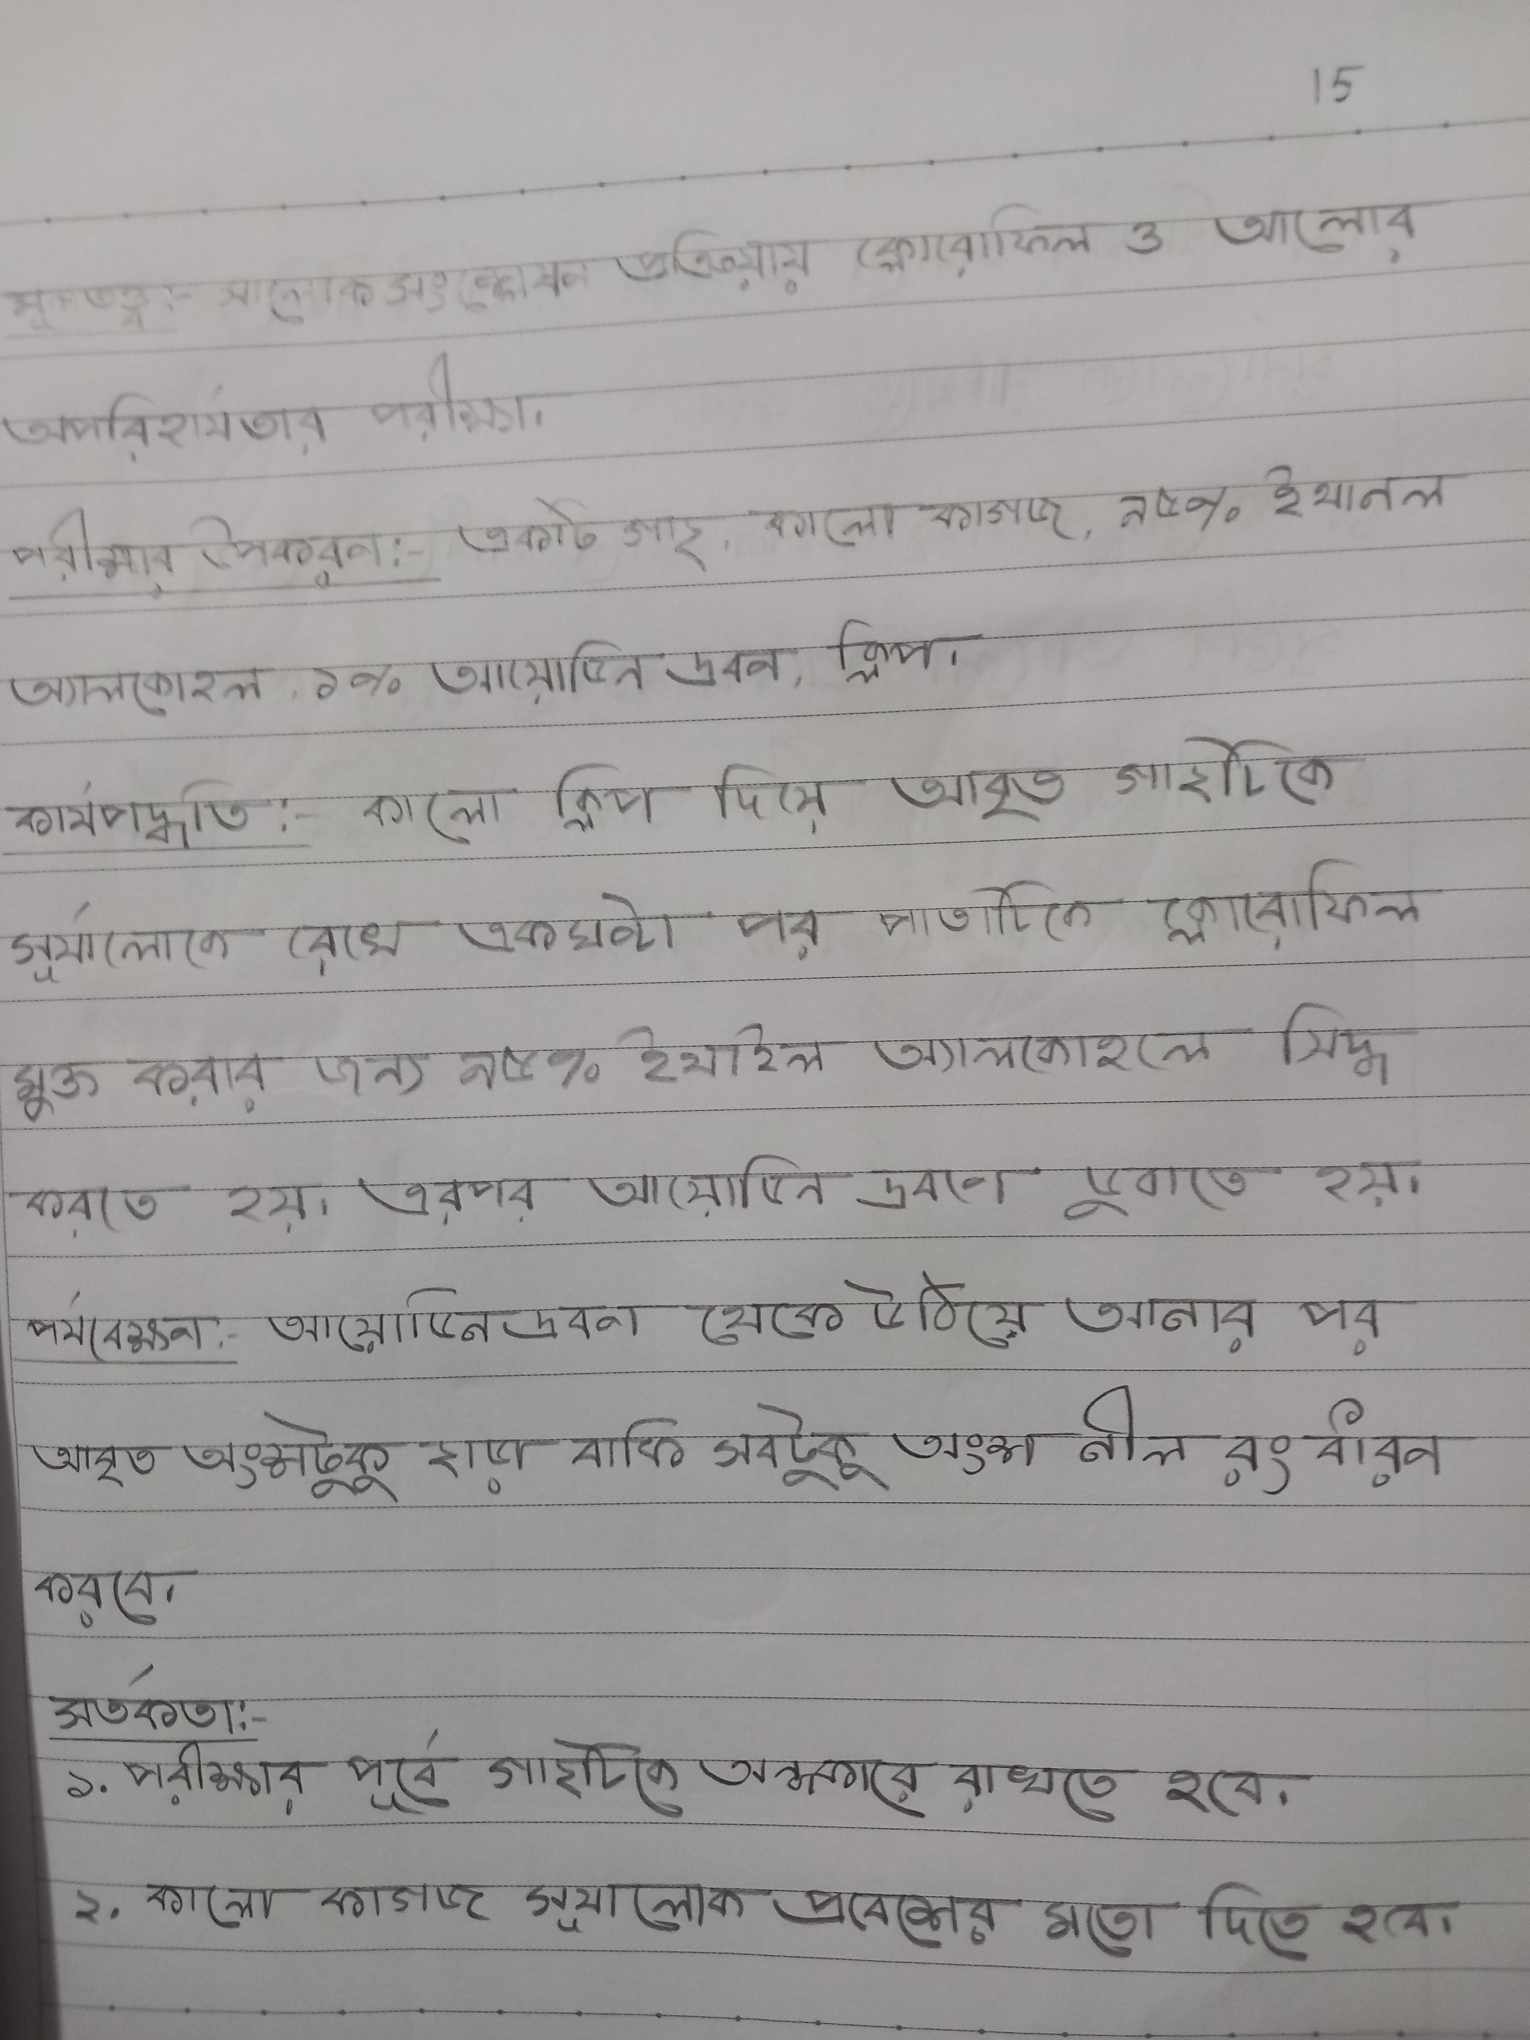 15
মূলতত্ত্ব:- সালোকসংশ্লেষন প্রক্রিয়ায় ক্লোরোফিল ও আলোর
অপরিহার্যতার পরীক্ষা।
পরীক্ষার উপকরন:- একটি গাছ, কালো কাগজ, ৯৫% ইথানল
অ্যালকোহল, ১% আয়োডিন দ্রবন, ক্লিপ।
কার্যপদ্ধতি:- কালো ক্লিপ দিয়ে আবৃত গাছটিকে
সূর্যালোকে রেখে একঘন্টা পর পাতাটিকে ক্লোরোফিল
মুক্ত করার জন্য ৯৫% ইথাইল অ্যালকোহলে সিদ্ধ
করতে হয়। এরপর আয়োডিন দ্রবণে ডুবাতে হয়।
পর্যবেক্ষন:- আয়োডিন দ্রবন থেকে উঠিয়ে আনার পর
আবৃত অংশটুকু ছাড়া বাকি সবটুকু অংশ নীল রং ধারন
করবে।
সর্তকতা:-
১. পরীক্ষার পূর্বে গাছটিকে অন্ধকারে রাখতে হবে।
২. কালো কাগজ সূর্যালোক প্রবেশের মতো দিতে হবে।